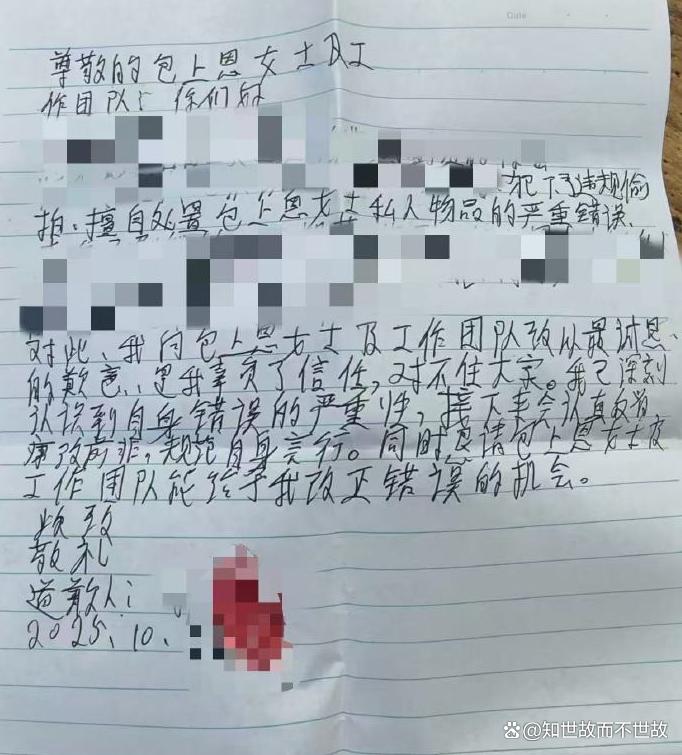 Date
尊敬的包上恩女士及工
作团队: 你们好
犯下了违规偷
拍、擅自处置包上恩女士私人物品的严重错误、
对此、我向包上恩女士及工作团队致以最诚恳、
的歉意、是我辜负了信任,对不住大家。我已深刻
认识到自身错误的严重性,接下来会认真反省
痛改前非,规范自身言行。同时恳请包上恩女士及
工作团队能给予我改正错误的机会。
敬礼
道歉人:
2025、10、
@知世故而不世故